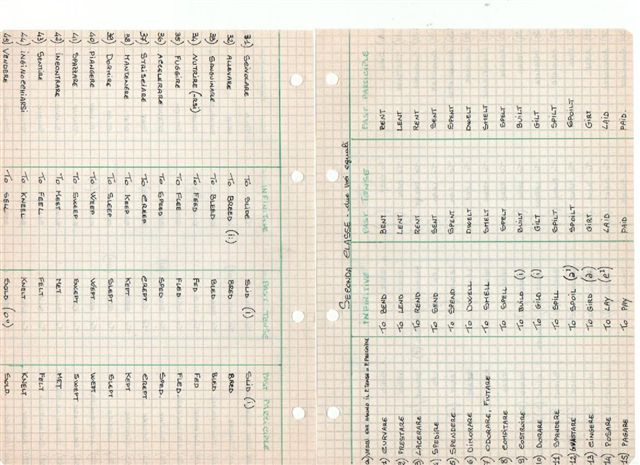 SECONDA CLASSE - due voci eguali
INFINITIVE PAST TENSE PAST PARTICIPLE
1) CURVARE TO BEND BENT BENT
2) PRESTARE TO LEND LENT LENT
3) LACERARE TO REND RENT RENT
4) SPEDIRE TO SEND SENT SENT
5) SPENDERE TO SPEND SPENT SPENT
6) DIMORARE TO DWELL DWELT DWELT
7) ODORARE, FIUTARE TO SMELL SMELT SMELT
8) COMPITARE TO SPELL SPELT SPELT
9) COSTRUIRE TO BUILD (1) BUILT BUILT
10) DORARE TO GILD (1) GILT GILT
11) SPANDERE TO SPILL SPILT SPILT
12) GUASTARE TO SPOIL SPOILT SPOILT
13) CINGERE TO GIRD GIRT GIRT
14) POSARE TO LAY LAID LAID
15) PAGARE TO PAY PAID PAID
INFINITIVE PAST TENSE PAST PARTICIPLE
31) SCIVOLARE TO SLIDE SLID (1) SLID (1)
32) ALLEVARE TO BRED BRED
33) SANGUINARE TO BLEED BLED BLED
34) NUTRIRE (-RSI) TO FEED FED FED
35) FUGGIRE TO FLEE FLED FLED
36) ACCELERARE TO SPEED SPED SPED
37) STRISCIARE TO CREEP CREPT CREPT
38) MANTENERE TO KEEP KEPT KEPT
39) DORMIRE TO SLEEP SLEPT SLEPT
40) PIANGERE TO WEEP WEPT WEPT
41) SPAZZARE TO SWEEP SWEPT SWEPT
42) INCONTRARE TO MEET MET MET
43) SENTIRE TO FEEL FELT FELT
44) INGINOCCHIARSI TO KNEEL KNELT KNELT
45) VENDERE TO SELL SOLD SOLD